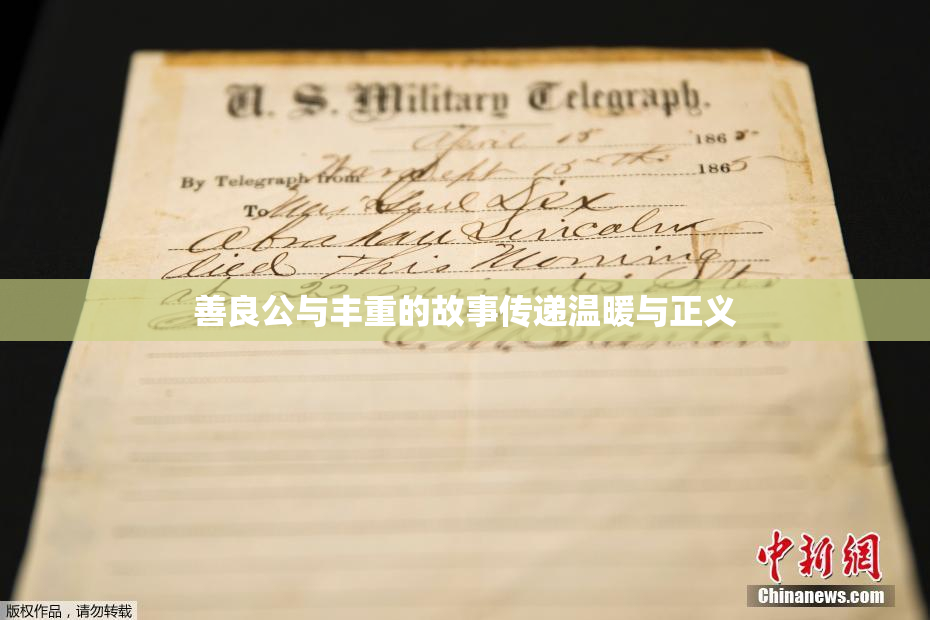 U. S. Military Telegraph.
April 15 1865
By Telegraph from War Dept 15th 1865
To Maj Genl Dix
Abraham Lincoln
died This Morning
at 22 minutes After
善良公与丰重的故事传递温暖与正义
中新网
Chinanews.com
版权作品，请勿转载